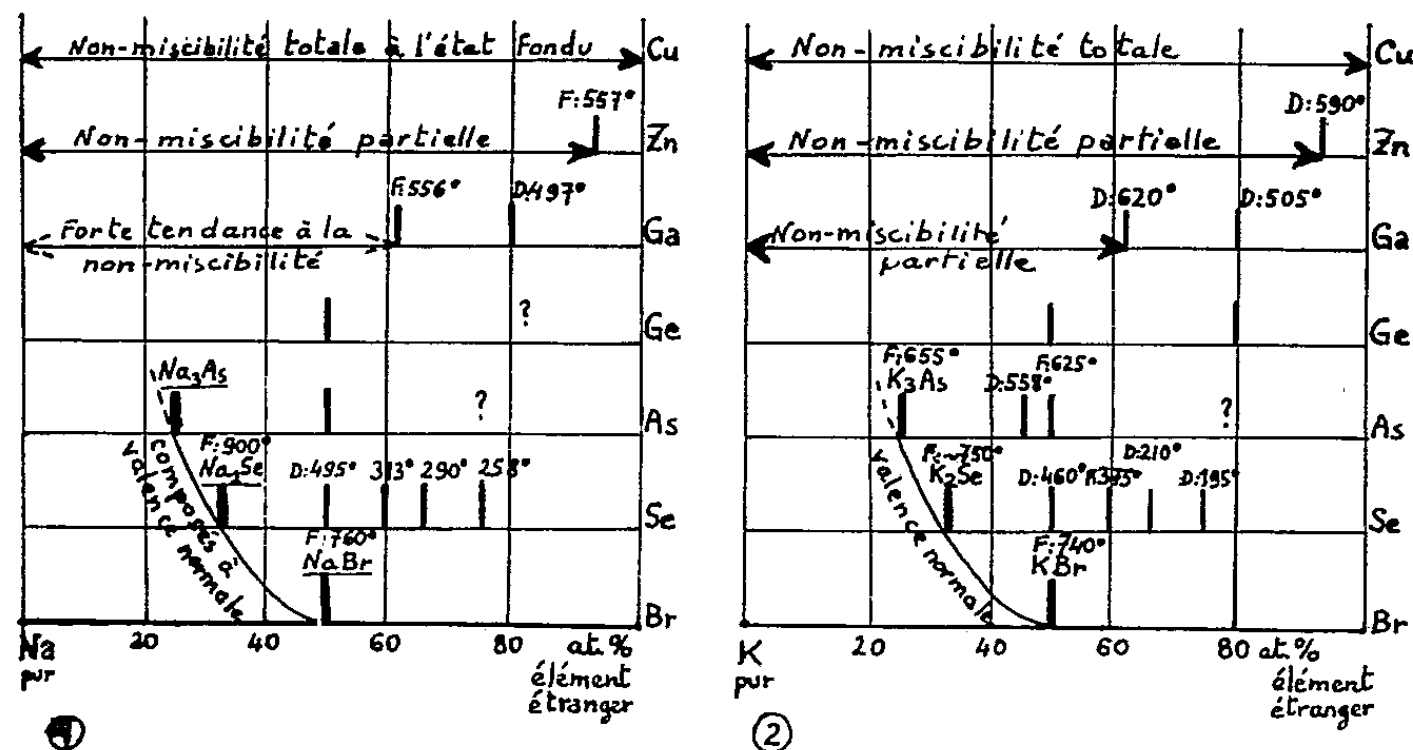 Non-miscibilité totale à l'état fondu Cu
F:557°
Non-miscibilité partielle Zn
F:556° D:497°
Forte tendance à la Ga
non-miscibilité
? Ge
Na₃As ? As
F:900°
Na₂Se D:495° 313° 290° 258° Se
composés à
valence normale
F:760°
NaBr Br
Na 20 40 60 80 at.%
pur élément
étranger
1
Non-miscibilité totale Cu
D:590°
Non-miscibilité partielle Zn
D:620° D:505°
Non-miscibilité Ga
partielle
Ge
F:655° F:625°
K₃As D:558° ? As
F:~750° D:210°
K₂Se D:460° D:195° Se
valence normale
F:740°
KBr Br
K 20 40 60 80 at.%
pur élément
étranger
2